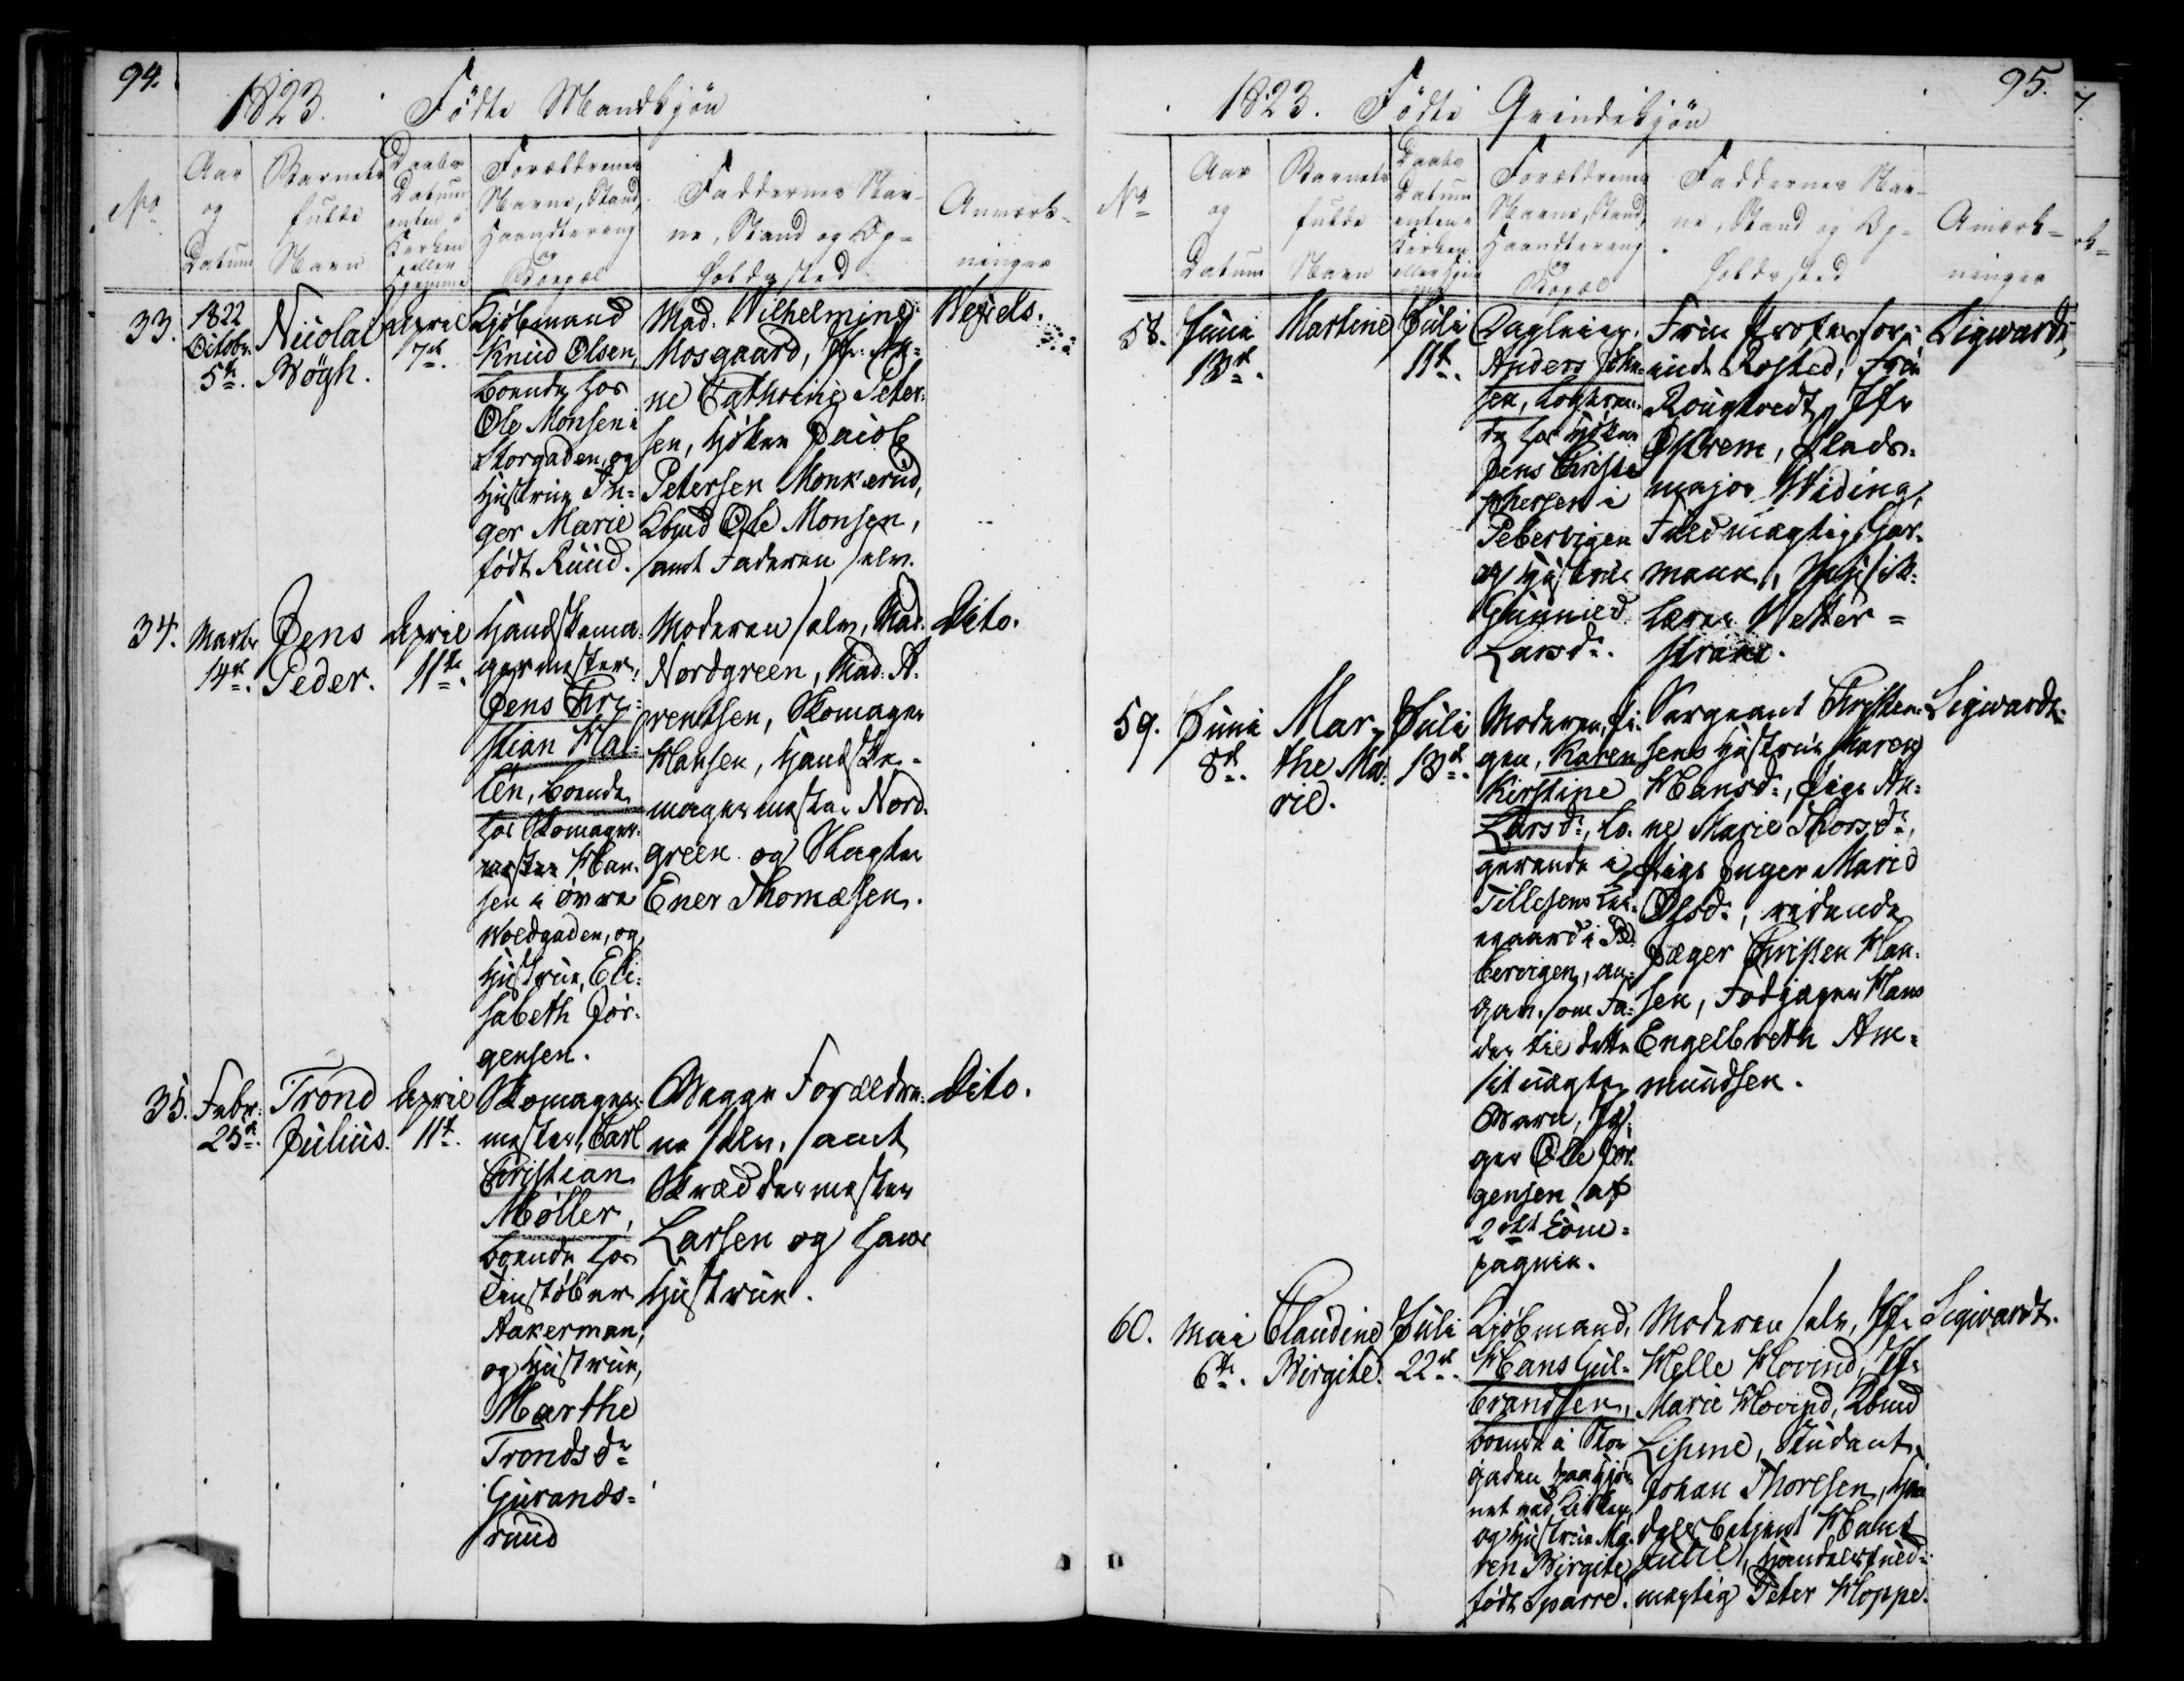 94.
1823. Födte Mandkjön
No
Aar
og
Datum
Barnets
fulde
Navn
Daabs
Datum
enten i
Kirken
eller
hjemme
Forældrenes
Navne, Stand,
Haandtering
og
Bopæl
Faddernes Nav-
ne, Stand og Op-
holdssted
Anmærk-
ninger
33.
1822
Octobr.
5te.
Nicolai
Bøgh.
April
7de.
Kjöbmand
Knud Olsen,
boende hos
Ole Monsen i
Storgaden, og
Hustrue In-
ger Marie
født Ruud.
Mad. Wilhelmine
Mosgaard, Jfr. An-
ne Cathrine Peter-
sen, Höker Jacob
Petersen Monkerud,
Kbmd Ole Monsen,
samt Faderen selv.
Wexels.
34.
Marts
14de.
Jens
Peder.
April
11te.
Handskema-
germester,
Jens Chri-
stian Hal-
lén, boende
hos Skomager-
mester Han-
sen i øvre
Woldgaden, og
Hustrue, Eli-
sabeth Jör-
gensen.
Moderen selv, Mad.
Nordgreen, Mad. A-
rentsen, Skomager
Hansen, Handske-
magermester Nord-
green og Slagter
Ener Thomæsen.
Dito.
35.
Febr.
25de.
Trond
Julius.
April
11te.
Skomager-
mester, Carl
Christian
Møller,
boende hos
Tinstøber
Aakerman,
og Hustrue,
Marthe
Trondsdr
Gurands-
ruud
Begge Forældre-
ne selv, samt
Skreddermester
Larsen og hans
Hustrue.
Dito.
95.
1823. Födte Qvindekjön
No
Aar
og
Datum
Barnets
fulde
Navn
Daabs
Datum
enten i
Kirken
eller hjem
me
Forældrenes
Navne, Stand,
Haandtering
og
Bopæl
Faddernes Nav-
ne, Stand og Op-
holdssted
Anmærk-
ninger
58.
Juni
13de.
Martine
Juli
11te.
Dagleier,
Anders Joha-
sen, Logeren-
de hos Höker
Jens Christo
phersen i
Pebervigen
og Hustrue
Gunnild
Larsdr.
Frue Professor-
inde Rosted, Frue
Rougtvedt, Jfr
Østrem, Plads-
major Widing,
Fuldmægtig Har-
mann, Musik-
lærer Wetter-
strand.
Sigwardt,
59.
Juni
8de.
Mar-
the Ma-
rie.
Juli
13de.
Moderen, Pi-
gen, Karen
Kirstine
Larsdr., Lo-
gerende i
Tillesens Lei-
egaard i Pe-
bervigen, an-
gav som Fa-
der til dette
sit uægte
Barn, Jæ-
ger Ole Jör-
gensen af
2det Com-
pagnie.
Sergeant Christen-
sens Hustrue Maren
Hansdr., Pige An-
ne Marie Thorsdr.,
Pige Inger Marie
Olsdr., ridende
Jæger Christen Han-
sen, Fodjæger Hans
Engelbreth Am-
mundsen.
Sigwardt.
60.
Mai
6te.
Claudine
Birgite.
Juli
22de.
Kjöbmand,
Hans Gul-
brandsen,
boende i Stor
gaden paa Hjör-
net ved Kirken,
og Hustrue Ma-
ren Birgite
födt Sparre.
Moderen selv, Jfr
Helle Hovind, Jfr
Marie Hovind, Kbmd
Lisme, Student
Johan Thoresen, Han
delsbetjent Hans
Juell, Handelsfuld-
megtig Peter Hoppe.
Sigwardt.